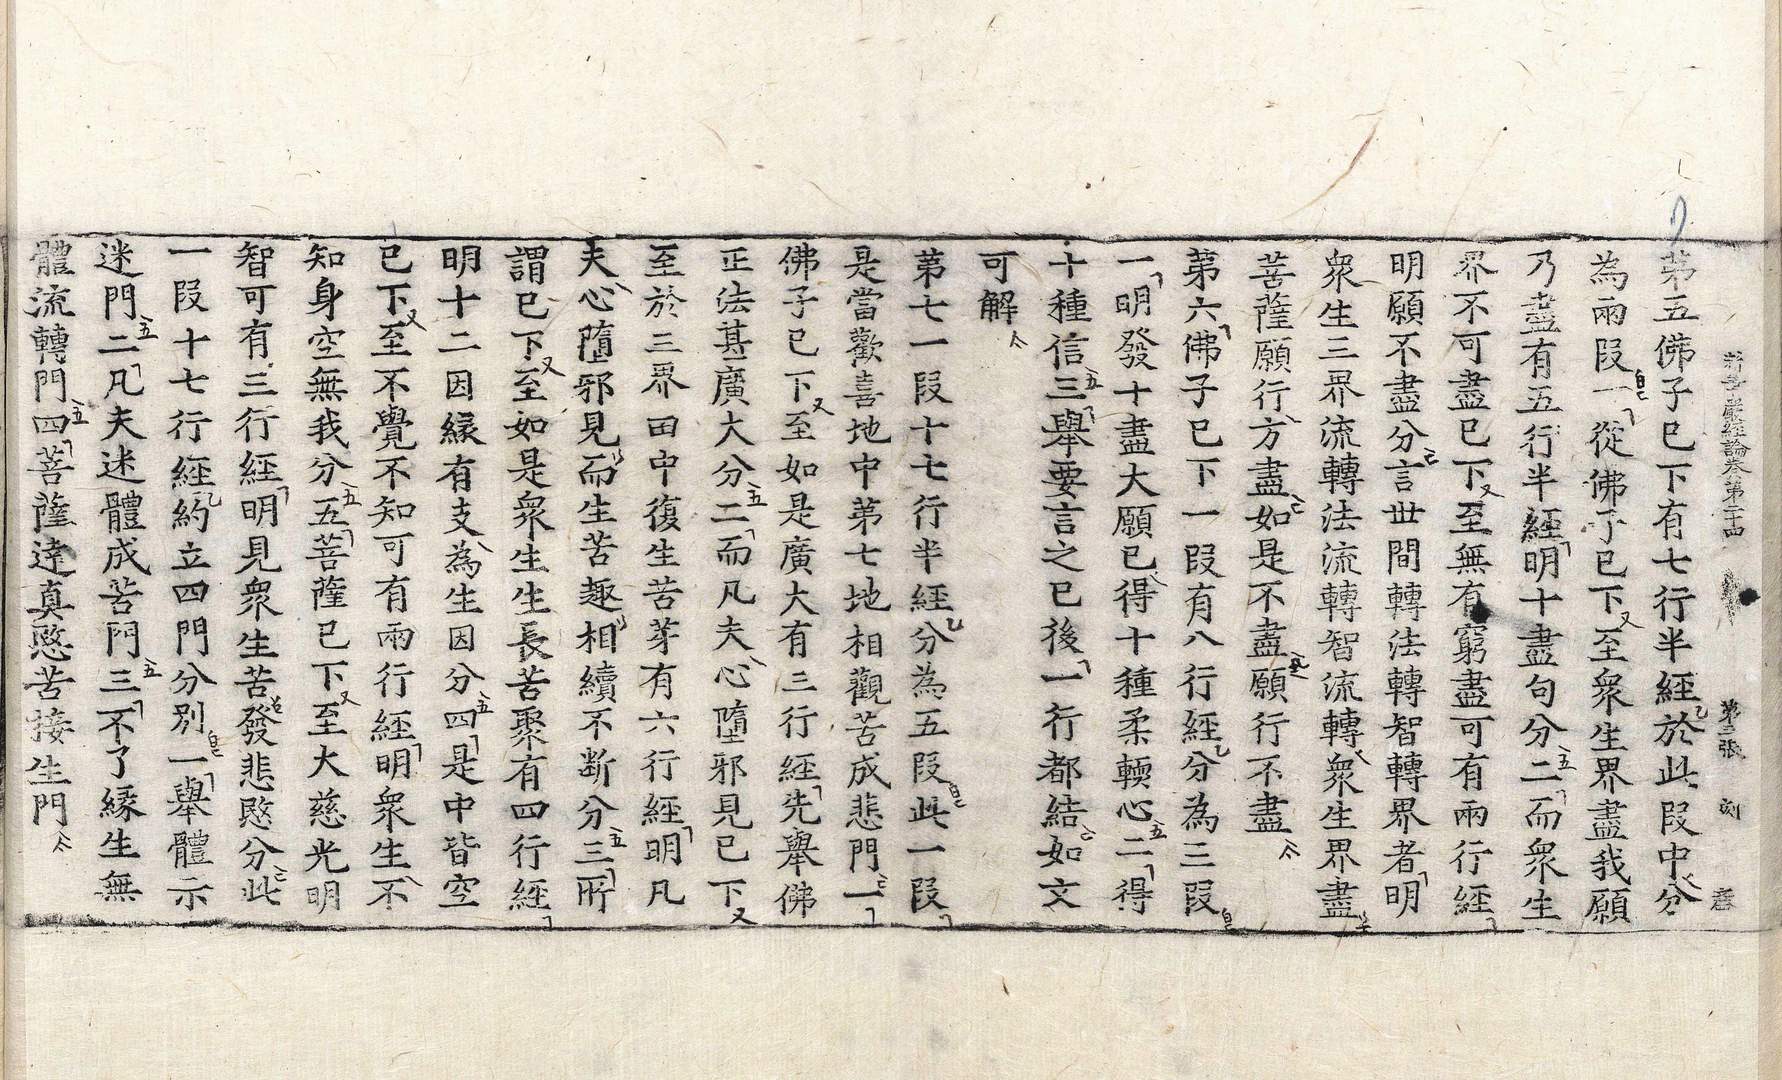 新華嚴經論卷第二十四 第三張 刻
第五佛子巳下有七行半經於此叚中分
為兩叚一從佛子巳下至衆生界盡我願
乃盡有五行半經明十盡句分二而衆生
界不可盡巳下至無有窮盡可有兩行經
明願不盡分言世間轉法轉智轉界者明
衆生三界流轉法流轉智流轉衆生界盡
菩薩願行方盡如是不盡願行不盡
第六佛子巳下一叚有八行經分為三叚
一明發十盡大願巳得十種柔輭心二得
十種信三舉要言之巳後一行都結如文
可解
第七一叚十七行半經分為五叚此一叚
是當歡喜地中第七地相觀苦成悲門一
佛子巳下至如是廣大有三行經先舉佛
正法甚廣大分二而凡夫心墮邪見巳下
至於三界田中復生苦芽有六行經明凡
夫心墮邪見而生苦趣相續不断分三所
謂巳下至如是衆生生長苦聚有四行經
明十二因緣有支為生因分四是中皆空
巳下至不覺不知可有兩行經明衆生不
知身空無我分五菩薩巳下至大慈光明
智可有三行經明見衆生苦發悲愍分此
一叚十七行經約立四門分別一舉體示
迷門二凡夫迷體成苦門三不了緣生無
體流轉門四菩薩達真愍苦接生門